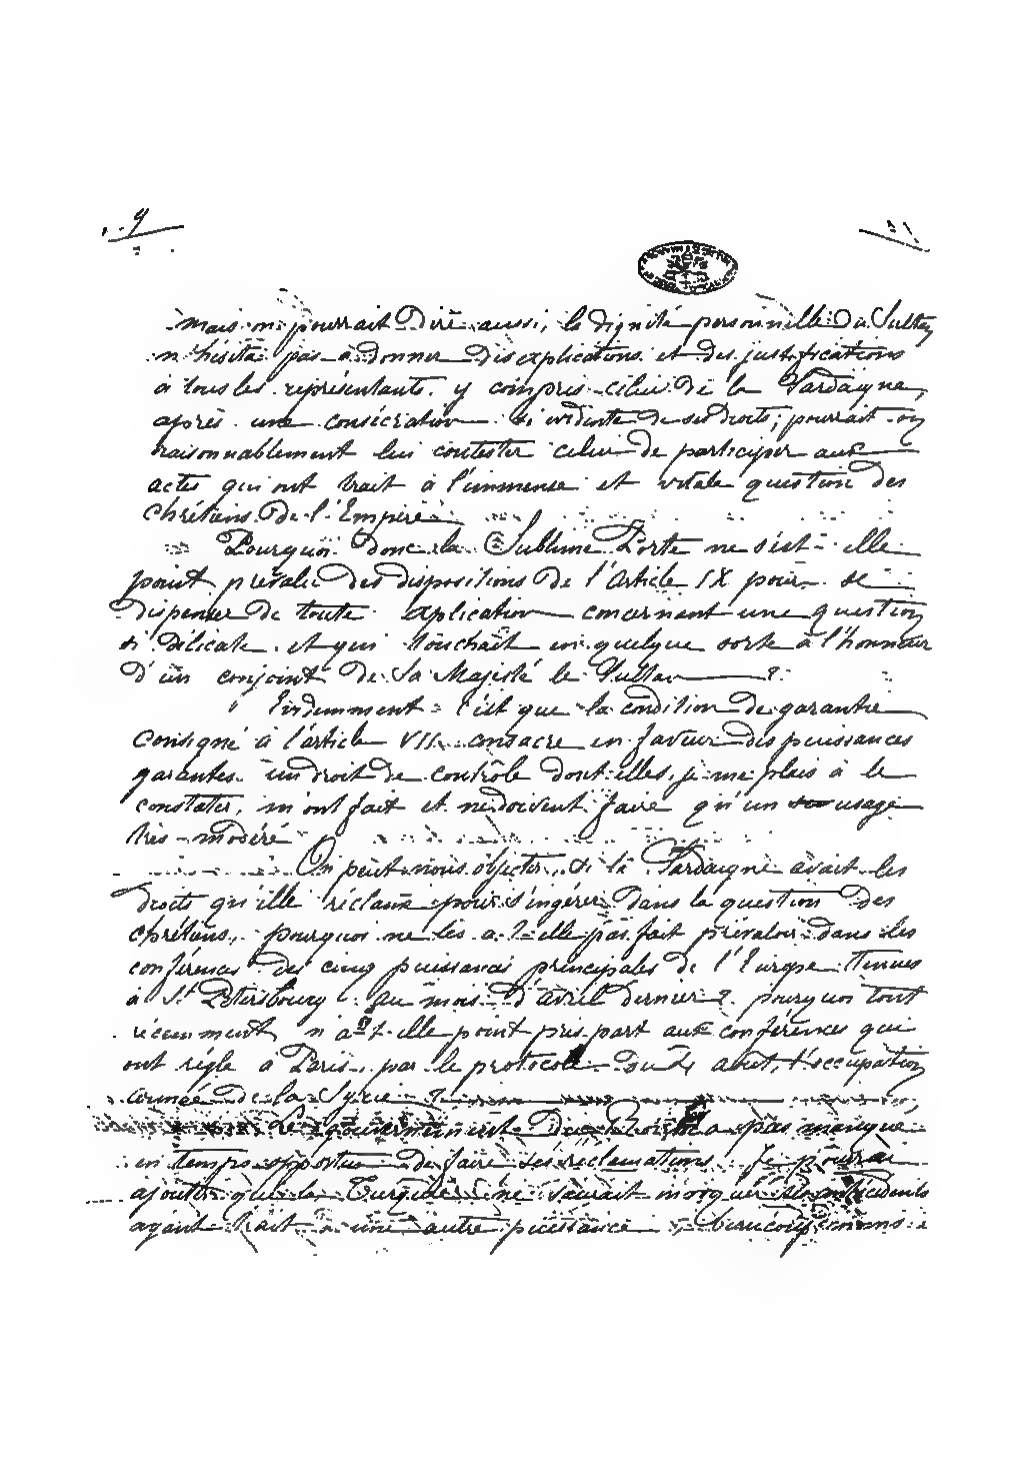 9
mais on pourrait dire aussi, la dignité personnelle du Sultan
n'hésita pas à donner des explications et des justifications
à tous les représentants y compris celui de la Sardaigne,
après une consécration si évidente de ses droits, pourrait on
raisonnablement lui contester celui de participer aux
actes qui ont trait à l'immense et vitale question des
Chrétiens de l'Empire
Pourquoi donc la Sublime Porte ne s'est-elle
point prévalu des dispositions de l'article IX pour se
dispenser de toute explication concernant une question
si délicate et qui touchait en quelque sorte à l'honneur
d'un conjoint de Sa Majesté le Sultan ?
Evidemment c'est que la condition de garantie
consigné à l'article VII consacre en faveur des puissances
garantes un droit de contrôle dont elles, je me plais à le
constater, n'ont fait et ne doivent faire qu'un usage
très-modéré
On peut nous objecter, si la Sardaigne avait les
droits qu'elle réclame pour s'ingérer dans la question des
chrétiens, pourquoi ne les a-t-elle pas fait prévaloir dans les
conférences des cinq puissances principales de l'Europe tenues
à St Petersbourg au mois d'avril dernier ? pourquoi tout
récemment n'a-t-elle point pris part aux conférences qui
ont réglé à Paris, par le protocole du août, l'occupation
armée de la Syrie ?
Le gouvernement du Roi n'a pas manqué
en temps opportun de faire ses réclamations. Je pourrai
ajouter que la Turquie ne saurait invoquer les antécédents
ayant trait à une autre puissance, beaucoup moins